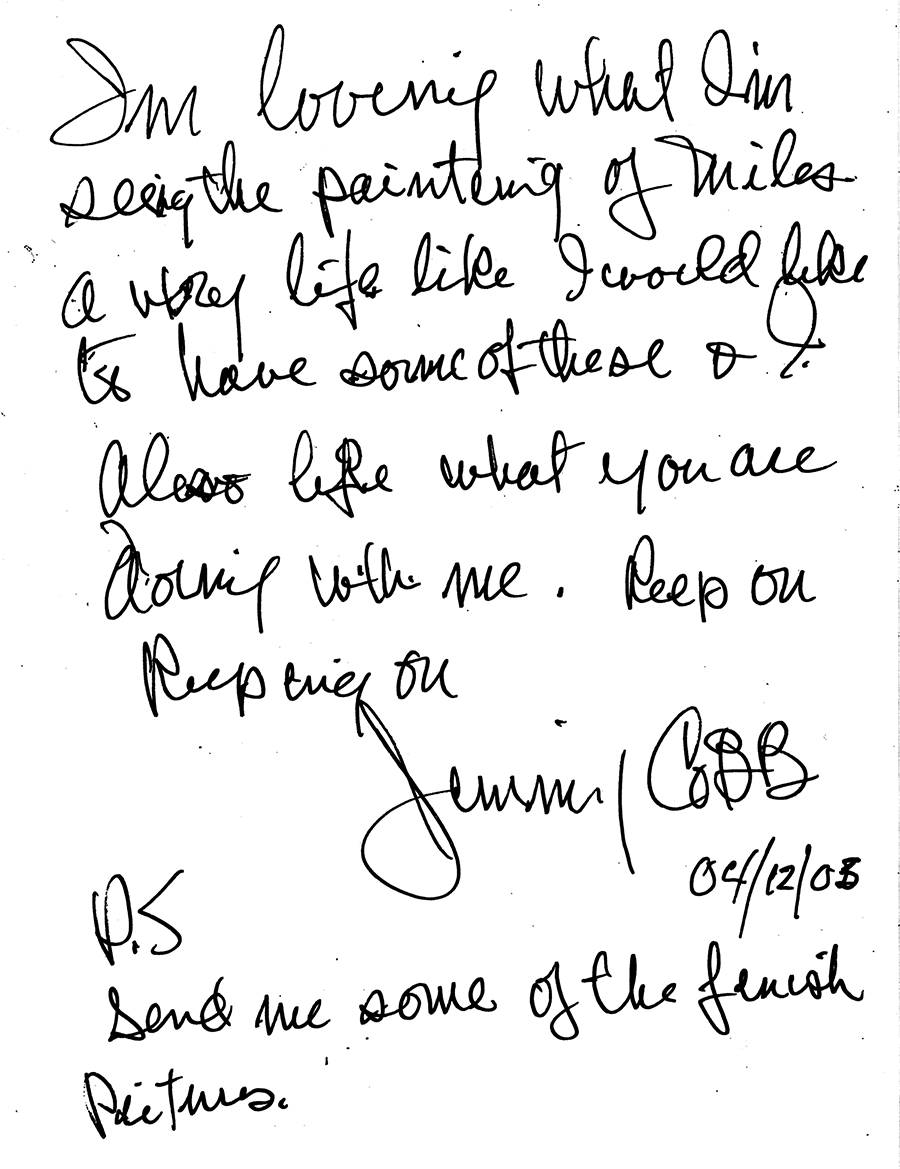 Im loving what Im
seeing the painting of Miles
a very life like I would like
to have some of these & I
Also like what you are
doing with me. Keep on
Keeping on
Jimmy CoBB
04/12/03
P.S
Send me some of the finish
Pictures.